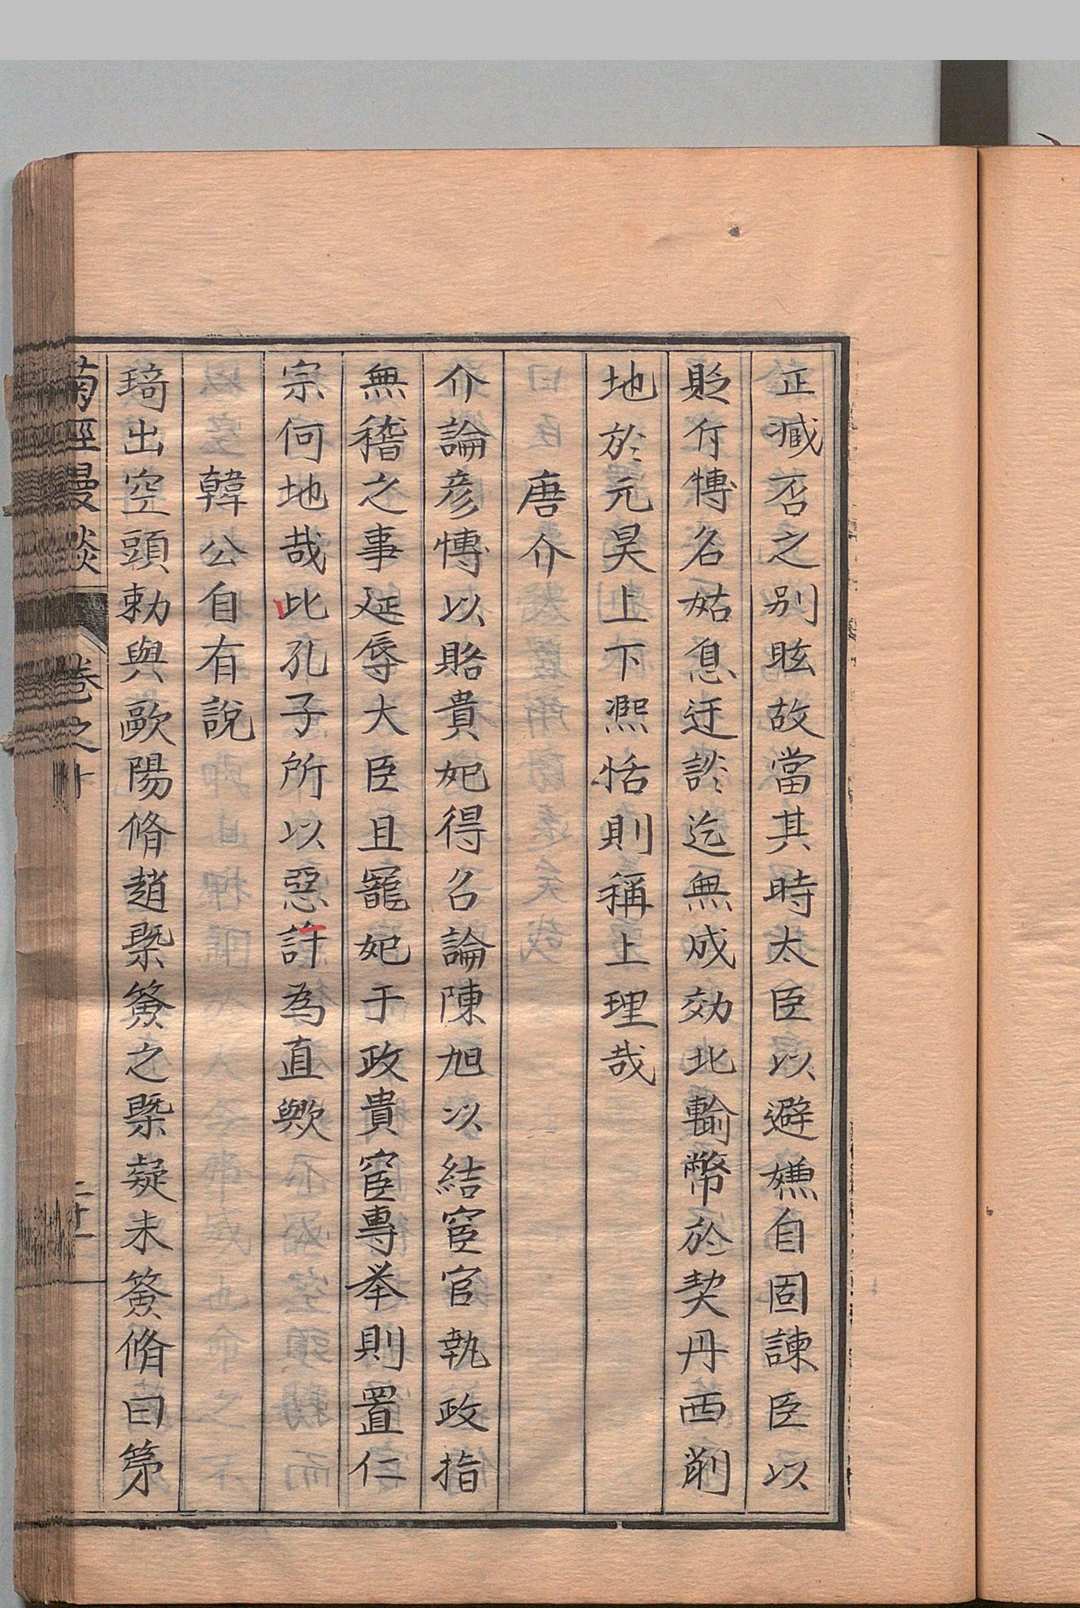 正臧否之别眩故當其時太臣以避嫌自固諫臣以
貶行愽名姑息迂談迄無成効北輸幣於契丹西削
地於元昊上下凞恬則稱上理哉
唐介
介論彦愽以賂貴妃得名論陳旭以結宦官執政指
無稽之事延辱大臣且寵妃于政貴宦專举則置仁
宗何地哉此孔子所以惡訐為直歟
韓公自有說
琦出空頭勅與歐陽脩趙槩簽之槩疑未簽脩曰第
菊徑漫談
卷之十
二十一